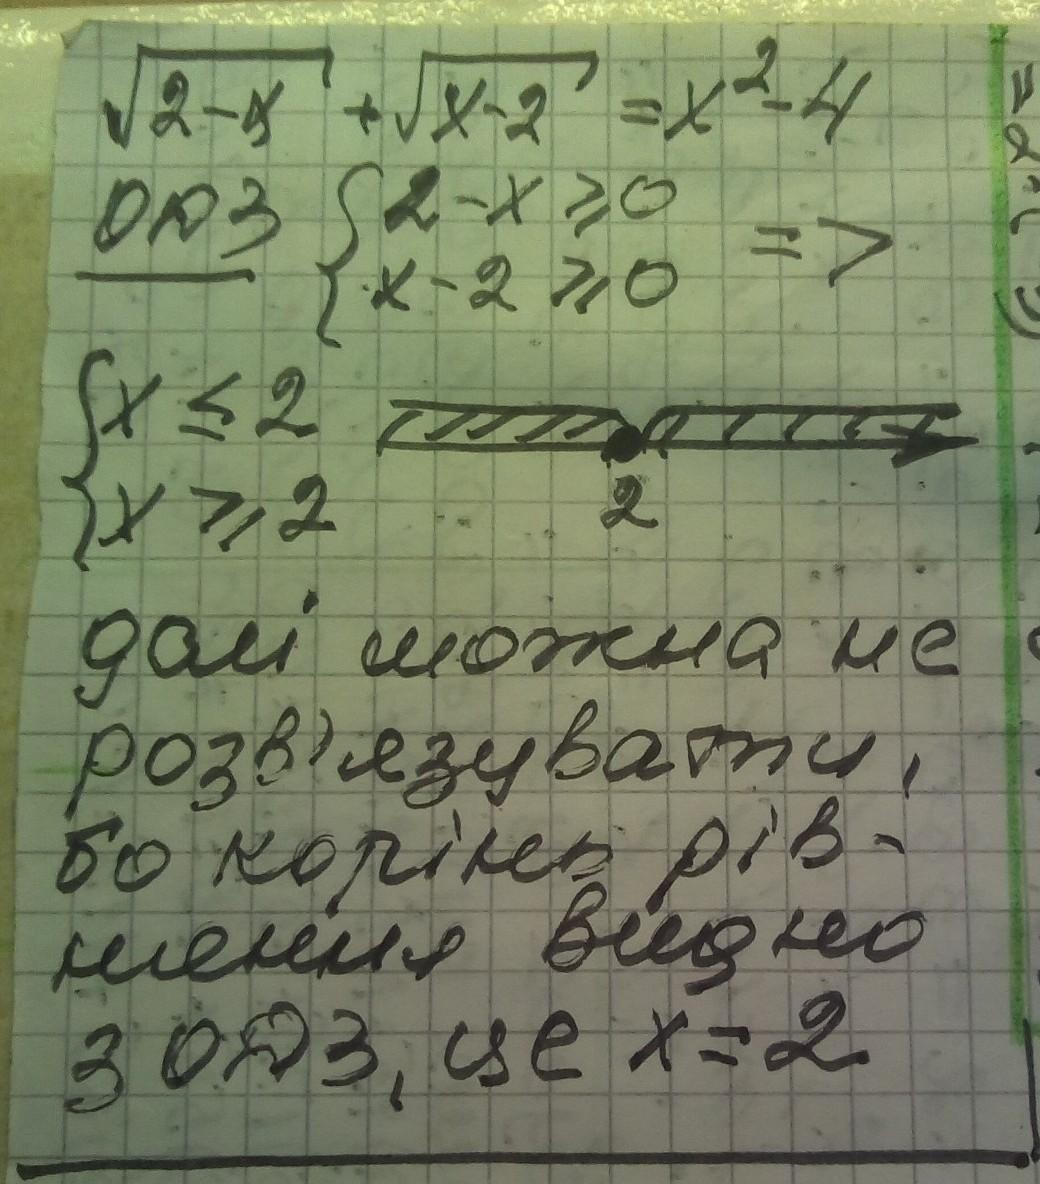 √2-x + √x-2 = x²-4
ОДЗ { 2-x ≥ 0
x-2 ≥ 0 =>
{ x ≤ 2
x ≥ 2
2
далі можна не
розв'язувати,
бо корінь рів-
няння видно
з ОДЗ, це x=2